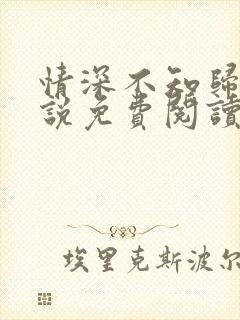 情深不知歸
說免費閱讀
埃里克斯波尔